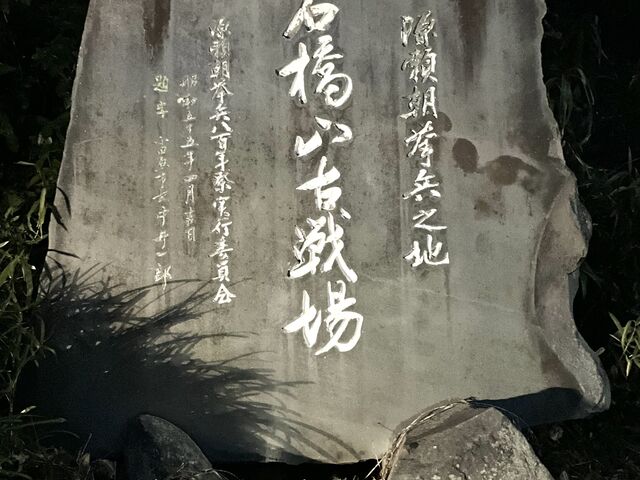 源頼朝挙兵之地
石橋山古戦場
源頼朝挙兵八百年祭実行委員会
昭和五十五年四月吉日
題字